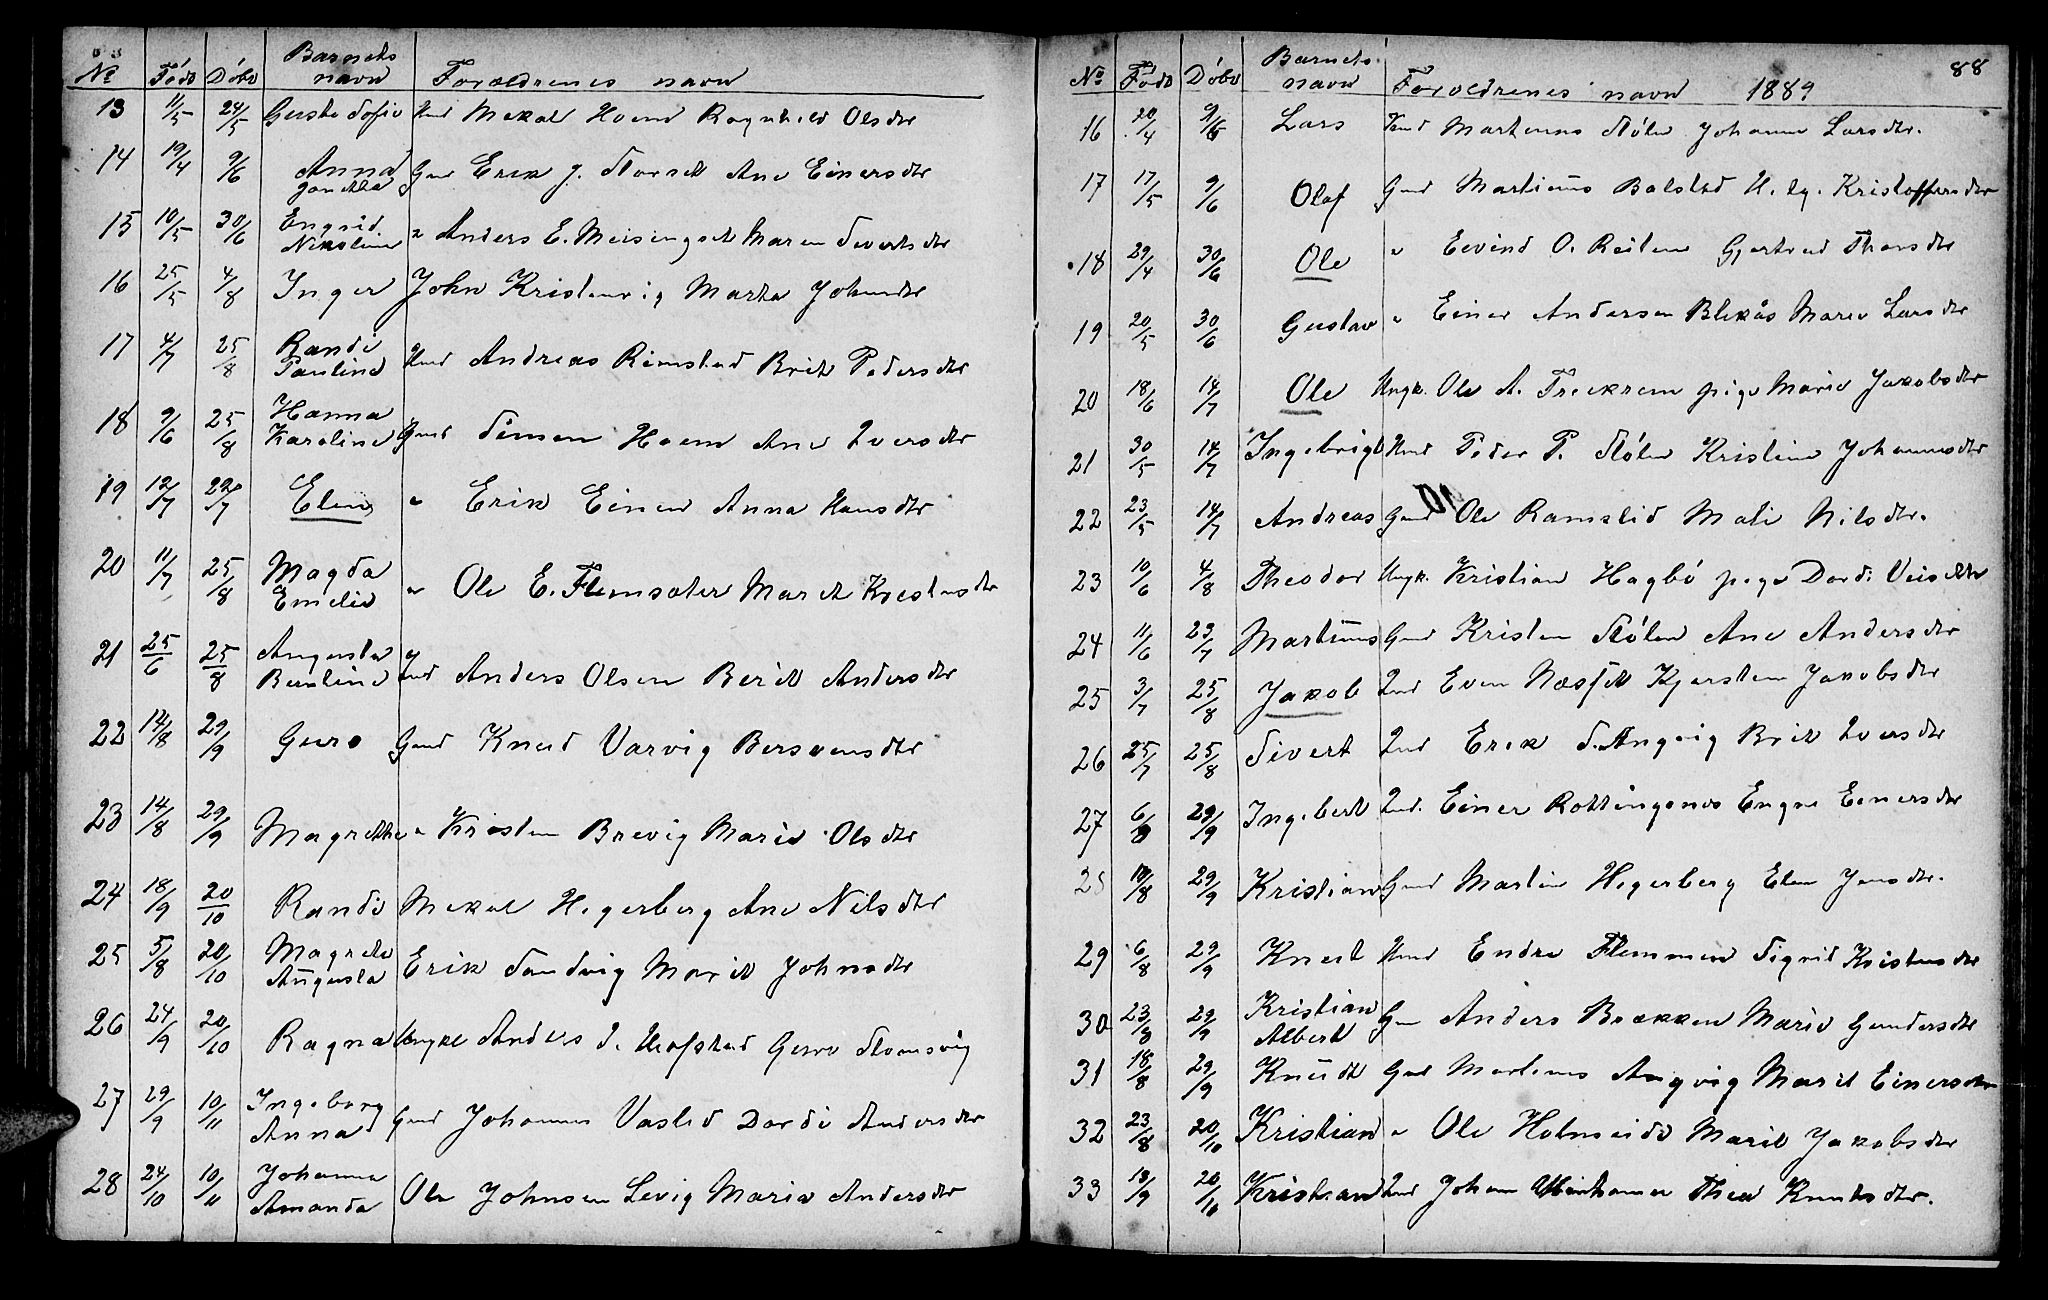 No Född Döbt Barnets navn Forældrenes navn
13 11/5 24/5 Gusta Sofie Hmd Mekal Hoem Ragnhild Olsdtr
14 19/4 9/6 Anna Gmd Erik J. Storset Ane Einersdtr
15 10/5 30/6 Engrid Nikoline " Anders E. Meisingset Maren Sivertsdtr
16 25/5 4/8 Inger John Kristenvig Marta Johansdtr
17 4/7 25/8 Randi Pauline Hmd Andreas Rimstad Brit Pedersdtr
18 9/6 25/8 Hanna Karoline Gmd Simen Hoem Ane Iversdtr
19 12/7 22/7 Elen " Erik Einer Anna Hansdtr
20 11/7 25/8 Magda Emelie " Ole E. Flemsæter Marit Kristensdtr
21 25/6 25/8 Augusta Berntine Ind Anders Olsen Berit Andersdtr
22 14/8 29/9 Guro Gmd Knud Varvig Bersvensdtr
23 14/8 29/9 Magrethe " Kristen Brevig Marie Olsdtr
24 18/9 20/10 Randi Mekal Hegerberg Ane Nilsdtr
25 5/8 20/10 Magrete Augusta Erik Sandvig Marit Johnsdtr
26 24/9 20/10 Ragna Ungkl Anders I. Hofstad Guro Stomsvig
27 29/9 10/11 Ingeborg Anna Gmd Johannes Vasted Dordi Andersdtr
28 24/10 10/11 Johanna Amanda Ole Johnsen Levig Marie Andersdtr
88
No Född Döbt Barnets navn Forældrenes navn 1889
16 20/4 9/6 Lars Martinus Stölen Johanne Larsdtr.
17 17/5 9/6 Olaf Gmd Martinus Bolstad Kristoffersdtr
18 29/4 30/6 Ole " Eivind O. Reiten Gjertrud Thorsdtr
19 20/5 30/6 Gustav " Einer Andersen Blekås Marie Larsdtr
20 18/6 14/7 Ole Ungk. Ole A. Trækrem pige Marie Jakobsdtr
21 30/5 14/7 Ingebrigt Hmd Peder P. Stölen Kristine Johannesdtr
22 23/5 14/7 Andreas Gmd Ole Ramslid Mali Nilsdtr.
23 10/6 4/8 Theodor Ungk. Kristian Hagbö pige Dordi
24 11/6 23/7 Martinus Gmd Kristen Stölen Ane Andersdtr
25 3/7 25/8 Jakob Ind Even Næsset Kjersten Jakobsdtr
26 25/7 25/8 Sivert Ind Erik S. Angvig Brit Iversdtr
27 6/8 29/9 Ingebert Ind. Einer Rottingsnes Engre Einersdtr
10/8 29/9 Kristian Gmd Martin Hegerberg Elen Jonsdtr.
29 6/8 29/9 Knut Hmd Endre Flemmen Sigrid Kristensdtr
30 23/8 29/9 Kristian Albert Gm Anders Brækken Marie Gundersdtr
31 18/8 29/9 Knudt Gmd Martinus Angvig Marit Einersdtr
32 23/8 20/10 Kristian " Ole Holmeide Marit Jakobsdtr
33 18/9 20/10 Kristian Ind Johan Thea Knutsdtr.